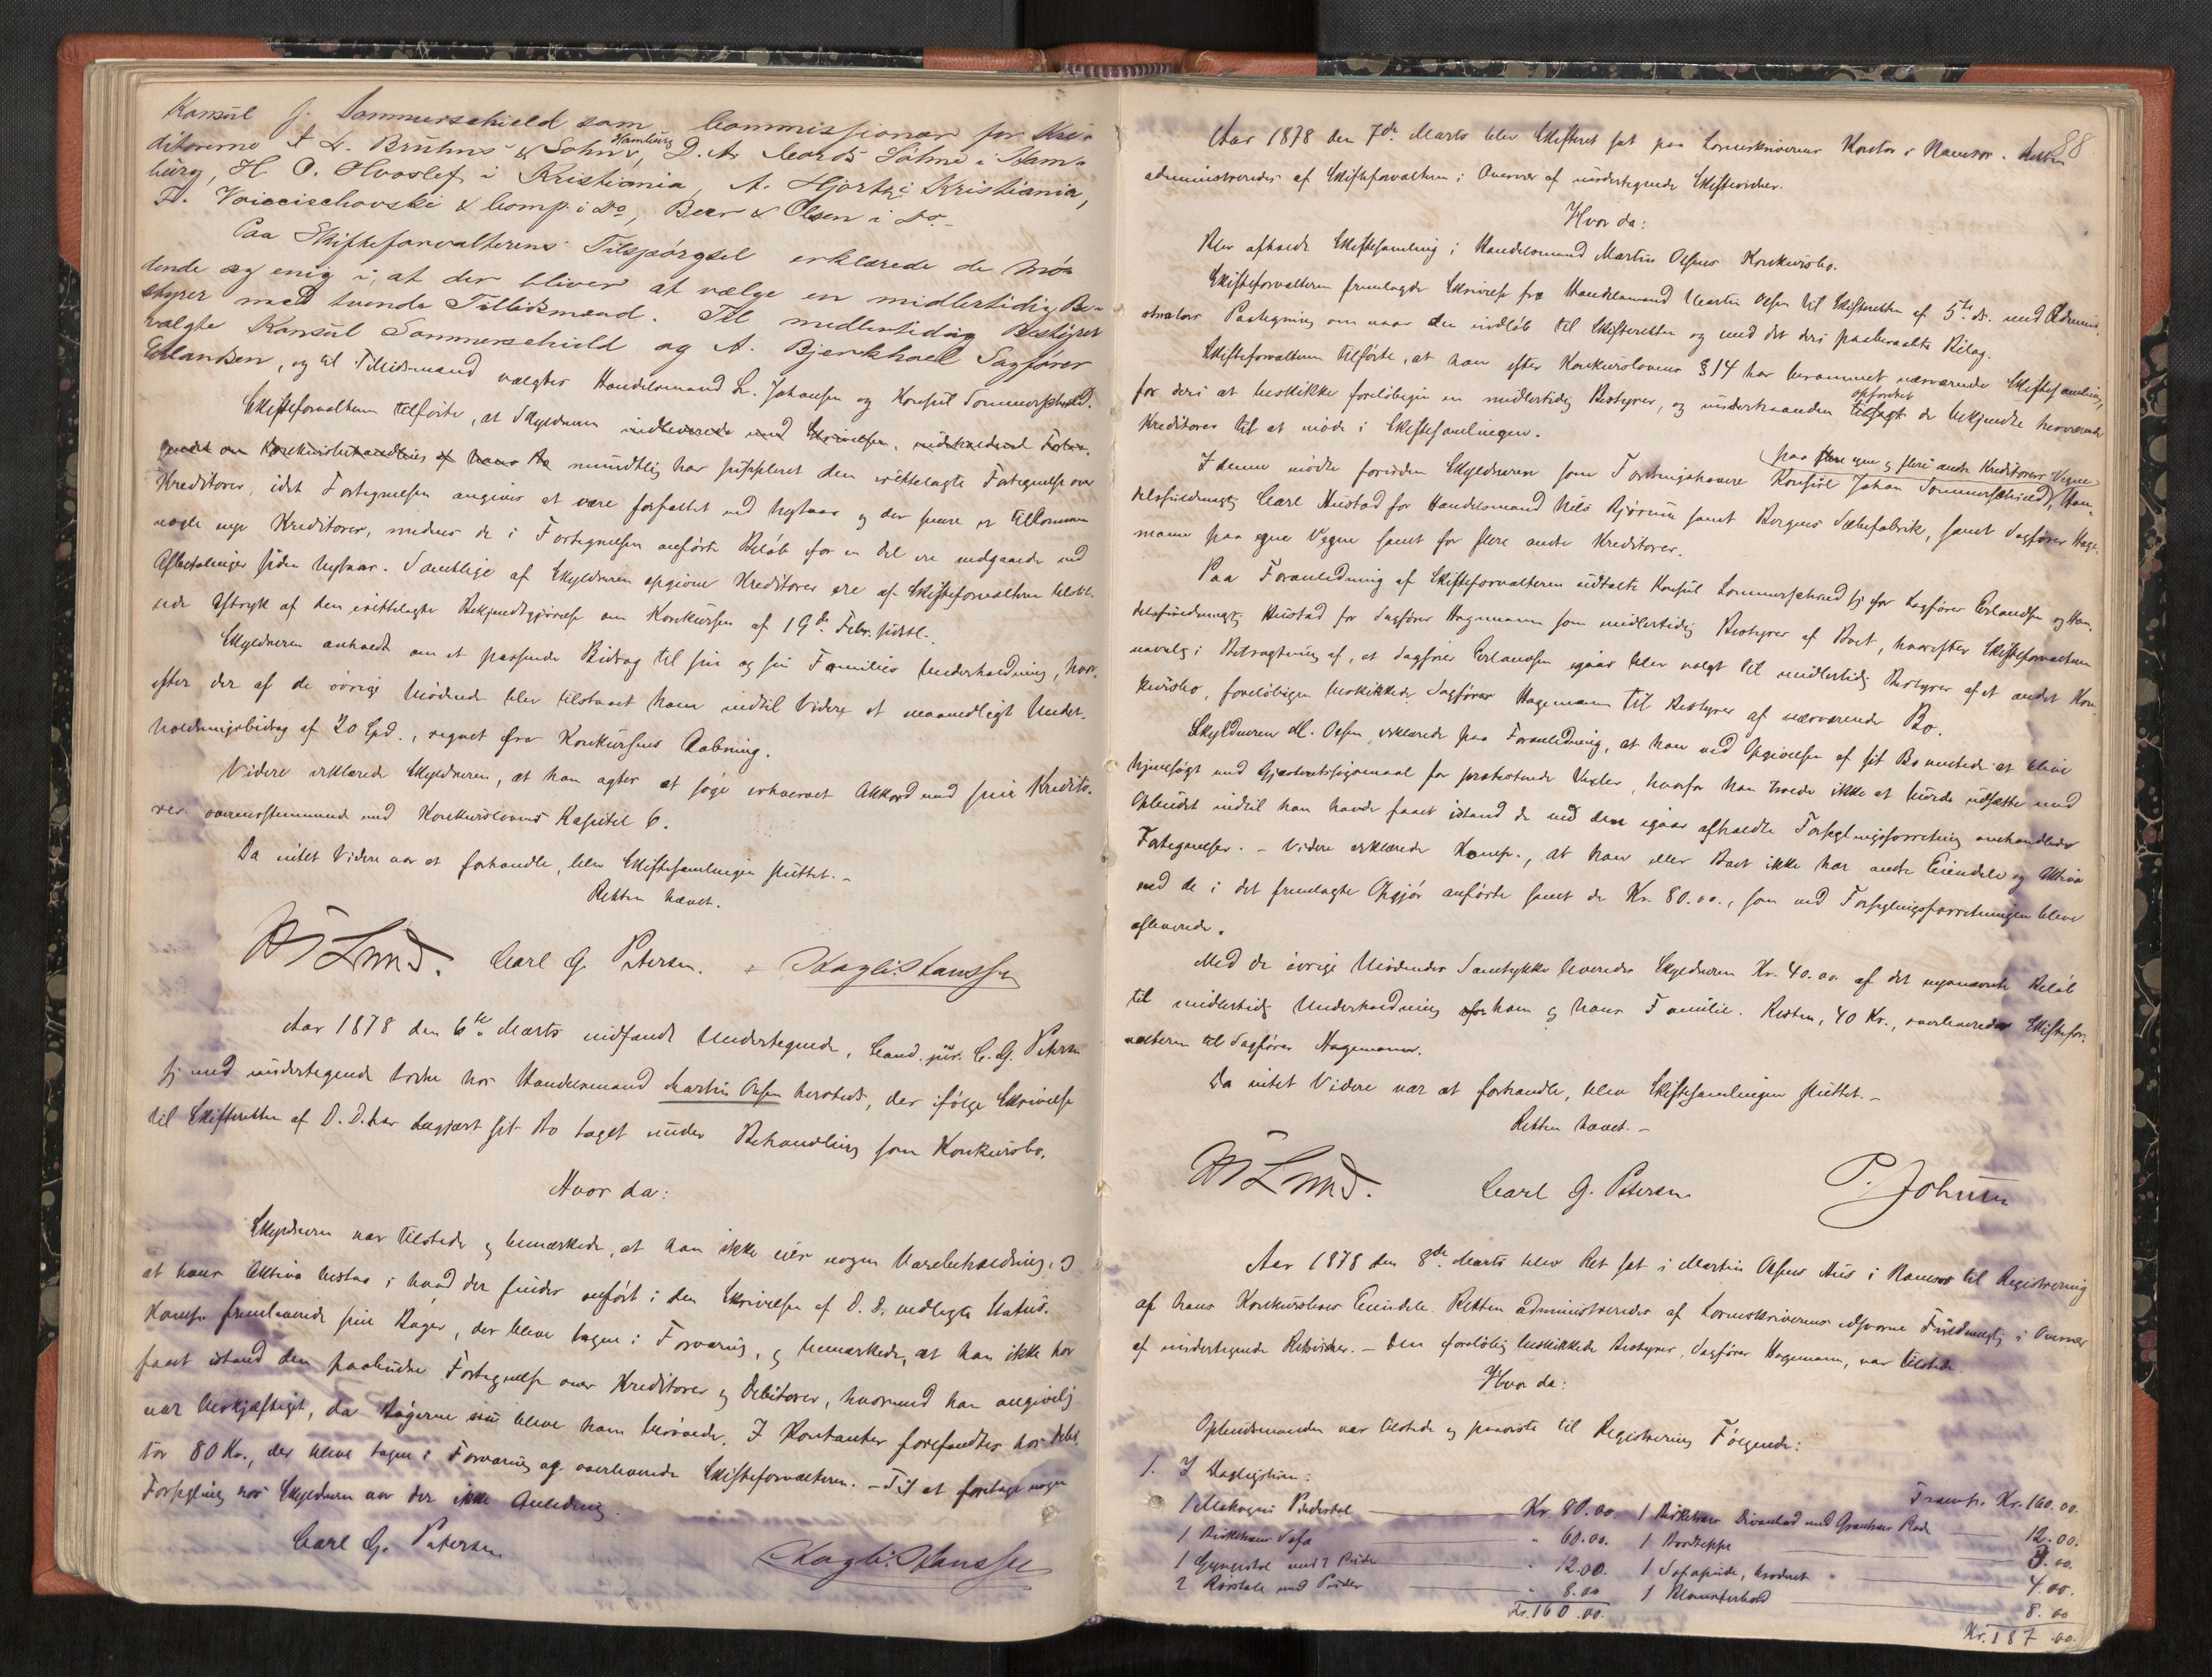 Konsul J. Sommerschield som Commissionær for Kre-
ditorerne L. Brühns & Sohn Hamburg, D. A. Cords Söhne i Ham-
burg, H. O. Hvoslef i Kristiania, A. Hjorth i Kristiania,
F. Voiccischovski & Comp. i Do, Beer & Olsen i Do.-
Paa Skifteforvalterens Tilspørgsel erklærede de Mö-
dende sig enig i, at der bliver at vælge en midlertidig Be-
styrer med tvende Tillidsmænd. Til midlertidig Bestyrer
valgte Konsul Sommerschield og A. Bjerkhoel Sagfører
Erlandsen, og til Tillidsmænd valgtes Handelsmand L. Johansen og Konsul Sommerschield.
Skifteforvalteren tilførte, at Skyldneren indleverede med Skrivelsen,
Konkursbehandling af hans Bo mundtlig har suppleret den irettelagte Fortegnelse over
Kreditorer, idet Fortegnelsen angives at være forfattet ved Nytaar og der senere er tilkommen
nogle nye Kreditorer, medens de i Fortegnelsen anførte Beløb for en Del ere nedgaaede ved
Afbetalinger siden Nytaar. Samtlige af Skyldneren opgivne Kreditorer ere af Skifteforvalteren tilstil-
lede Aftryk af den irettelagte Bekjendtgjørelse om Konkursen af 19de Febr. sidstl.
Skyldneren anholdt om et passende Bidrag til sin og sin Familes Underholdning, hvor-
efter der af de øvrige Mødende blev tilstaaet ham indtil Videre et maanedligt Under-
holdningsbidrag af 20 Spd., regnet fra Konkursens Aabning.
Videre erklærede Skyldneren, at han agter at søge erhvervet Akkord med sine Kredito-
rer overensstemmende med Konkurslovens Kapitel 6.
Da intet Videre var at forhandle, blev Skiftesamlingen sluttet.-
Retten hævet.
Lund. Carl G. Petersen. Hansen
Aar 1878 den 6te Marts indfandt Undertegnede, Cand. jur. C. G. Petersen
sig med undertegnede Vidne hos Handelsmand Martin Olsen hersteds, der ifølge Skrivelse
til Skifteretten af D. D. har begjært sit Bo taget under Behandling som Konkursbo.
Hvor da:
Skyldneren var tilstede og bemærkede, at han ikke eier nogen Varebeholdning, og
at hans Aktiva bestaa i hvad der findes anført i den Skrivelsen af D. D. vedlagte Status.
Komp. fremleverede sine Bøger, der bleve tagne i Forvaring, og bemærkede, at han ikke har
faaet istand den paabudne Fortegnelse over Kreditorer og Debitorer, hvormed han angivelig
var beskjæftiget, da Bøgerne nu bleve ham berøvede. I Kontanter forefandtes hos Debi-
tor 80 Kr., der bleve tagne i Forvaring og overleverede Skifteforvalteren. - Til at foretage nogen
Forsegling hos Skyldneren var der ikke Anledning.
Carl G. Petersen Hansen
88
Aar 1878 den 7de Marts blev Skifteret sat paa Sorenskriverens Kontor i Namsos. Retten
administreredes af Skifteforvalteren i Overvær af undertegnede Skiftevidner.
Hvor da:
Blev afholdt Skiftesamling i Handelsmand Martin Olsens Konkursbo.
Skifteforvalteren fremlagde Skrivelse fra Handelsmand Martin Olsen til Skifteretten af 5te ds. med Admini-
strators Paategning om naar den indløb til Skifteretten og med det deri paaberaabte Bilag.
Skifteforvalteren tilførte, at han efter Konkurslovens § 14 har berammet nærværende Skiftesamling,
for deri at beskikke foreløbigen en midlertidig Bestyrer, og underhaanden tilsagt opfordret de bekjendte herværende
Kreditorer til at møde i Skiftesamlingen.
I denne mødte foruden Skyldneren som Fordringshavere Konsul Johan Sommerschield, paa egne og flere andre Kreditorers Vegne, Han-
delsfuldmægtig Carl Hustad for Handelsmand Nils Bjørum samt Bergens Sæbefabrik, samt Sagfører Hage-
mann paa egne Vegne samt for flere andre Kreditorer.
Paa Foranledning af Skifteforvalteren udtalte Konsul Sommerschield sig for Sagfører Erlandsen og Han-
delsfuldmægtig Hustad for Sagfører Hagemann som midlertidig Bestyrer af Boet, hvorefter Skifteforvalteren
navnlig i Betragtning af, at Sagfører Erlandsen igaar blev valgt til midlertidig Bestyrer af et andet Kon-
kursbo, foreløbigen beskikkede Sagfører Hagemann til Bestyrer af nærværende Bo.
Skyldneren M. Olsen erklærede paa Foranledning, at han ved Opgivelsen af sit Bo ventede at blive
hjemsøgt med Gjæsteretssøgsmaal for protesterede Vexler, hvorfor han troede ikke at burde udsætte med
Opbudet indtil han havde faaet istand de ved den igaar afholdte Forseglingsforretning omhandlede
Fortegnelser. - Videre erklærede Komp., at han eller Boet ikke har andre Eiendele og Aktiva
end de i det fremlagte Opgjør anførte samt de Kr. 80.00., som ved Forseglingsforretningen bleve
afleverede.
Med de øvrige Mødendes Samtykke leveredes Skyldneren Kr. 40.00. af det nysnævnte Beløb
til midlertidig Underholdning for ham og hans Familie. Resten, 40 Kr., overleveredes Skiftefor-
valteren til Sagfører Hagemann.
Da intet Videre var at forhandle, blev Skiftesamlingen sluttet.-
Retten hævet.-
Lund. Carl G. Petersen P. Johnsen
Aar 1878 den 8de Marts blev Ret sat i Martin Olsens Hus i Namsos til Registrering
af hans Konkursboes Eiendele. Retten administreredes af Sorenskriverens edsvorne Fuldmægtig i Overvær
af undertegnede Retsvidner. - Den foreløbig beskikkede Bestyrer, Sagfører Hagemann, var tilstede.
Hvor da:
Opbudsmanden var tilstede og paaviste til Registrering Følgende:
1. I Dagligstuen:
1 Mahogni Piedestal Kr. 80.00.
1 Birketræes Sofa " 60.00.
1 Gyngestol med 2 Puder " 12.00.
2 Rørstole med Puder " 8.00
Kr. 160.00.
Transp. Kr. 160.00.
1 Birketræes Divanbord med Grantræes Plade 12.00.
1 Bordteppe 3.00.
1 Sofapude, broderet 4.00.
1 Blomsterbord 8.00
Kr. 187.00.